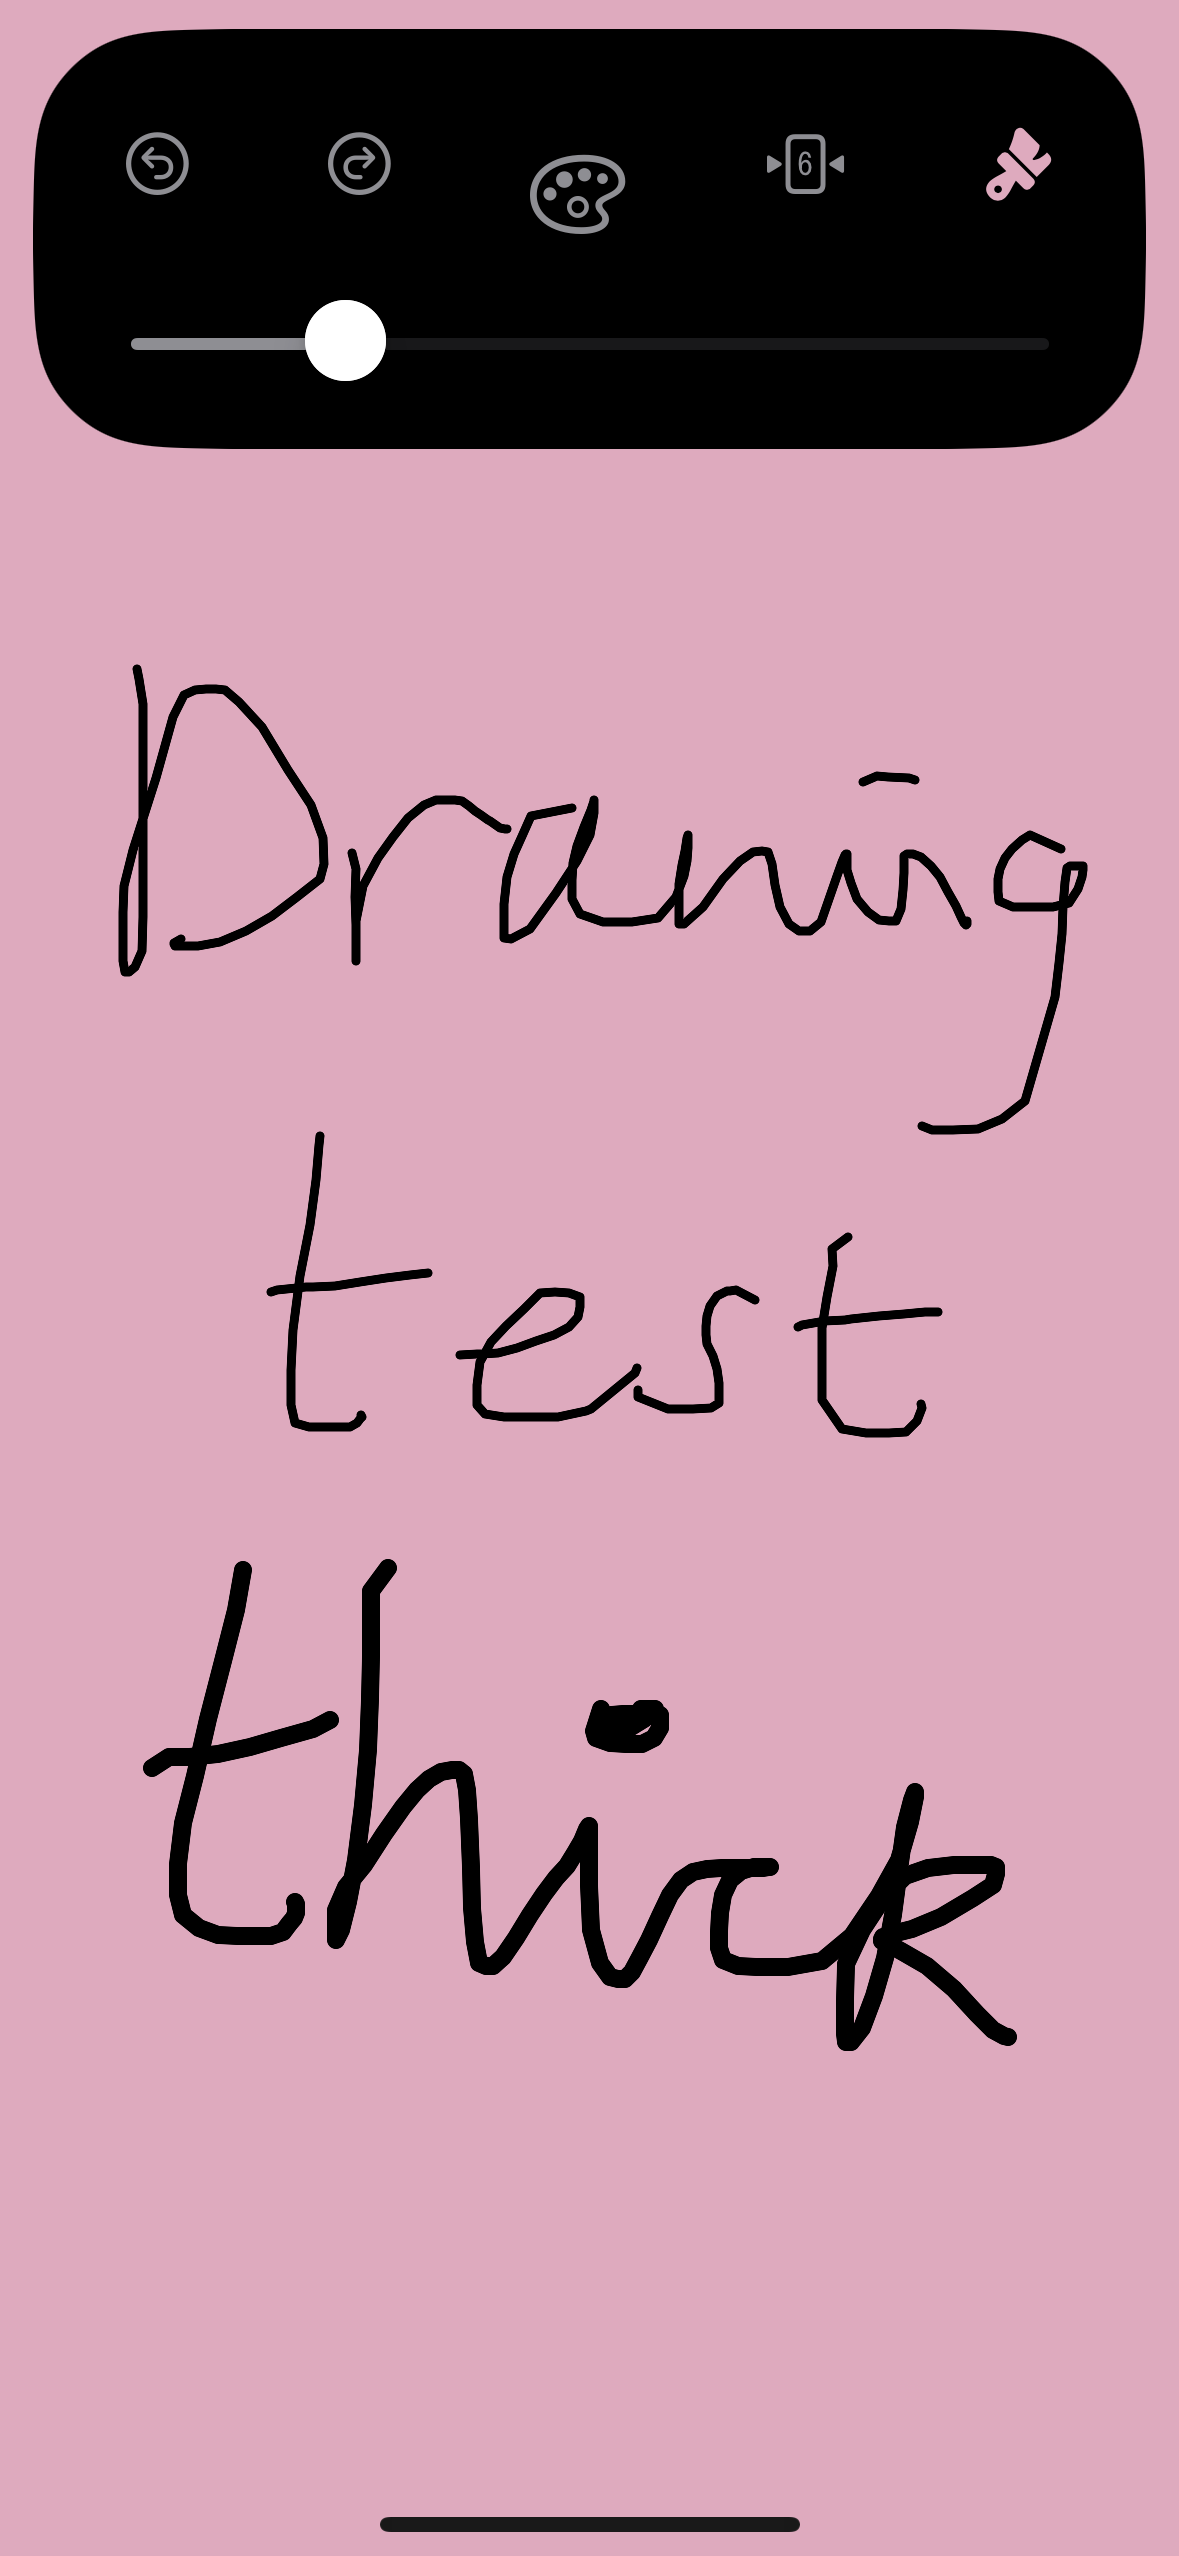 6
Drawing
test
thick